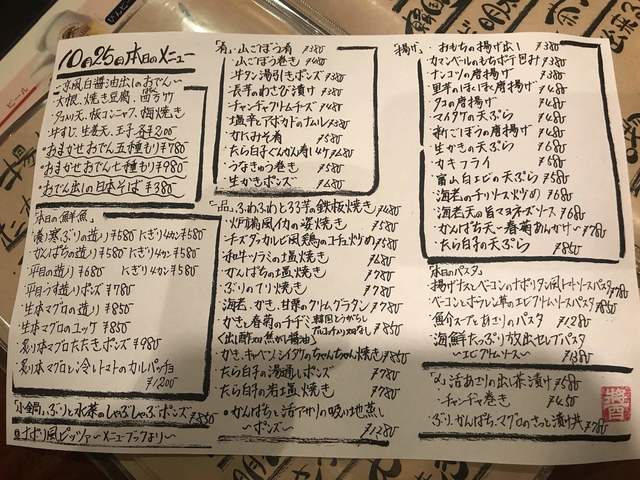 10月25日本日のメニュー
京風白醤油出しのおでん～
大根、焼き豆腐、
牛すじ、生姜天、玉子 各¥200
・おまかせおでん五種もり¥780
・おまかせおでん七種もり¥980
・おでん出しの日本そば ¥380
本日の鮮魚
寒ぶりの造り ¥580 にぎり4カン¥580
・かんぱちの造り ¥580 にぎり4カン¥580
・平目の造り ¥680 にぎり4カン¥580
・平目うす造りポン酢 ¥780
・生本マグロの造り ¥850
・生本マグロのユッケ ¥850
・炙り本マグロたたきポン酢 ¥980
・炙り本マグロと冷しトマトのカルパッチョ
¥1200
小鍋 ぶりと水菜のしゃぶしゃぶポン酢 ¥850
ナポリ風ピッツァ～メニューブックより～
「肴」・山ごぼう肴 ¥380
・山ごぼう巻き ¥480
・牛タン湯引きポン酢 ¥380
・長芋のわさび漬け ¥380
・チャンチャクリームチーズ ¥480
・塩辛とアボカドのナムル ¥380
・かにみそ肴 ¥580
・うなきゅう巻き ¥580
・生かきポン酢 ¥680
一品、ふわふわとろろ芋の鉄板焼き ¥480
・炉端風イカの姿焼き ¥580
・和牛ソーミの塩焼き ¥680
・かんぱちの塩焼き ¥780
・ぶりのテリ焼き ¥780
・海老、かき、甘栗のクリームグラタン ¥780
・かきと春菊のチヂミ
・かき、キャベツ、シイタケのちゃんちゃん焼き ¥850
・たら白子の湯通しポン酢 ¥780
・たら白子の岩塩焼き ¥780
・かんぱちと活アサリの吸い地蒸し
～ポン酢～ ¥1280
揚げ、・おもちの揚げ出し ¥380
・カマンベールのもちポテ包み ¥380
・ナンコツの唐揚げ ¥380
・里芋のほくほく唐揚げ ¥480
・タコの唐揚げ ¥480
・マイタケの天ぷら ¥480
・新ごぼうの唐揚げ ¥480
・生かきの天ぷら ¥680
・カキフライ ¥680
・富山白エビの天ぷら ¥580
・海老のチリソース炒め ¥680
・海老天の旨マヨネーズソース ¥680
・かんぱち天～春菊あんかけ～ ¥780
・たら白子の天ぷら ¥850
本日のパスタ
・揚げナスとベーコンのナポリタン風トマトソースパスタ ¥780
・ベーコンとホウレン草のエビクリームソースパスタ ¥980
・魚介スープとあさりのパスタ ¥1280
・海鮮たっぷり放出セレブパスタ
～エビクリームソース～ ¥1380
活あさりの出し茶漬け ¥580
・チャンチャ巻き ¥450
・ぶり、かんぱち、マグロのさっと漬け丼 ¥780